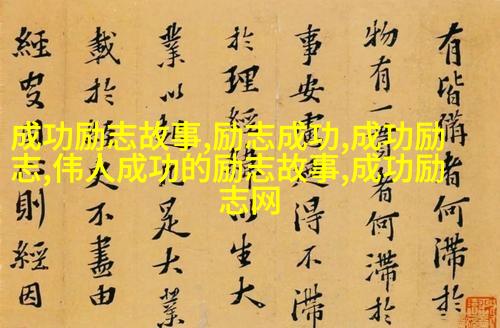 成功励志故事,励志成功,成功励
志,伟人成功的励志故事,成功励
志网
有皆者何滞於
物有一者何滞於
事安得不滞
於理經生大
業以是大業
載於不盡由
經則經因